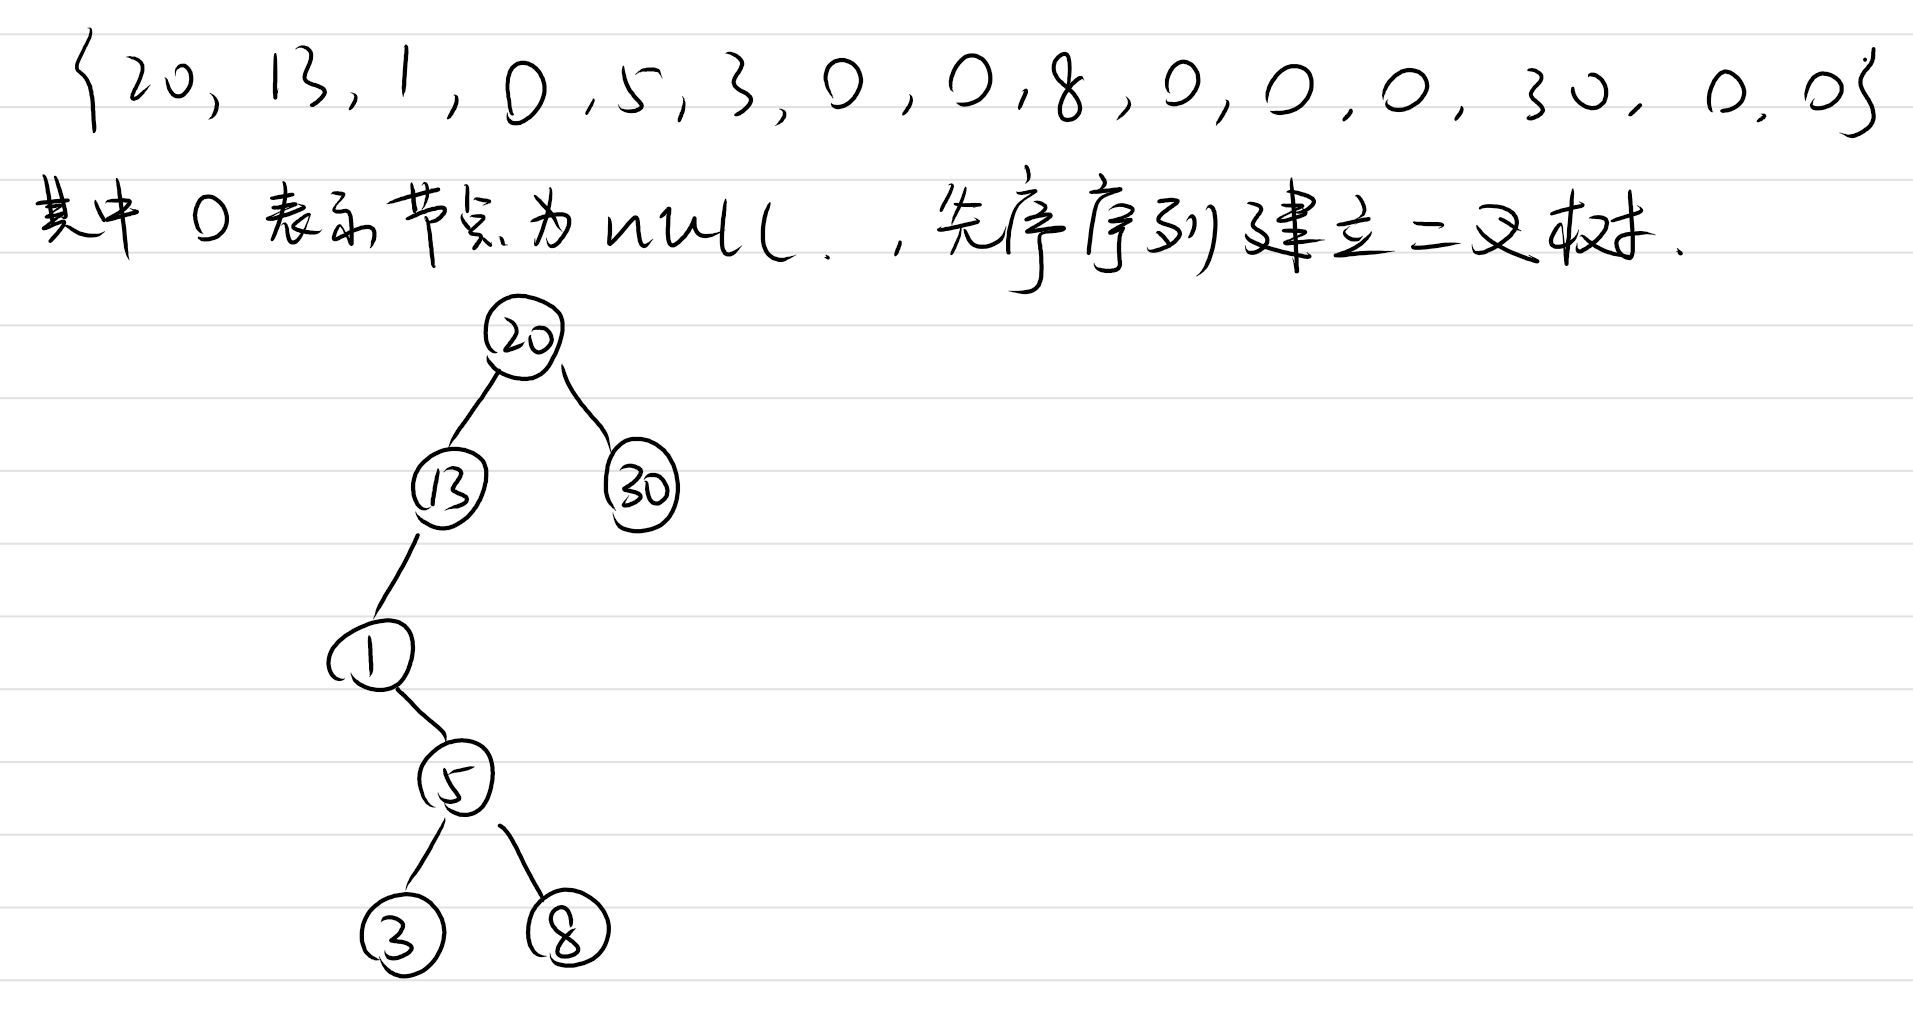 {20, 13, 1, 0, 5, 3, 0, 0, 8, 0, 0, 0, 30, 0, 0}
其中 0 表示节点为 null . , 先序序列建立二叉树.
20
13 30
1
5
3 8